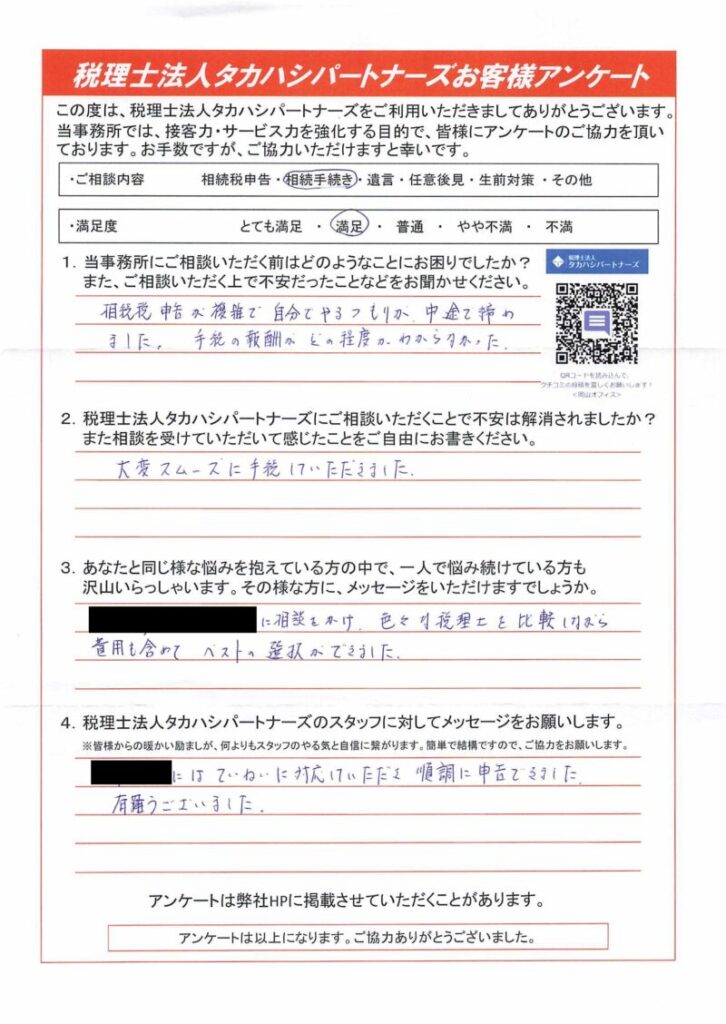 税理士法人タカハシパートナーズお客様アンケート
この度は、税理士法人タカハシパートナーズをご利用いただきましてありがとうございます。
当事務所では、接客力・サービス力を強化する目的で、皆様にアンケートのご協力を頂い
ております。お手数ですが、ご協力いただけますと幸いです。
・ご相談内容 相続税申告・相続手続き・遺言・任意後見・生前対策・その他
・満足度 とても満足 ・ 満足 ・ 普通 ・ やや不満 ・ 不満
1. 当事務所にご相談いただく前はどのようなことにお困りでしたか？
また、ご相談いただく上で不安だったことなどをお聞かせください。
税理士法人
タカハシパートナーズ
相続税申告が複雑で自分でやるつもりが、中途で諦め
ました。 手続の報酬がどの程度かわからなかった。
QRコードを読み込んで、
クチコミの投稿を宜しくお願いします！
<岡山オフィス>
2. 税理士法人タカハシパートナーズにご相談いただくことで不安は解消されましたか？
また相談を受けていただいて感じたことをご自由にお書きください。
大変スムーズに手続していただきました。
3. あなたと同じ様な悩みを抱えている方の中で、一人で悩み続けている方も
沢山いらっしゃいます。その様な方に、メッセージをいただけますでしょうか。
に相談をかけ、色々な税理士を比較しながら
費用も含めて ベストの選択ができました。
4. 税理士法人タカハシパートナーズのスタッフに対してメッセージをお願いします。
※皆様からの暖かい励ましが、何よりもスタッフのやる気と自信に繋がります。簡単で結構ですので、ご協力をお願いします。
にはていねいに対応していただき 順調に申告できました。
有難うございました。
アンケートは弊社HPに掲載させていただくことがあります。
アンケートは以上になります。ご協力ありがとうございました。